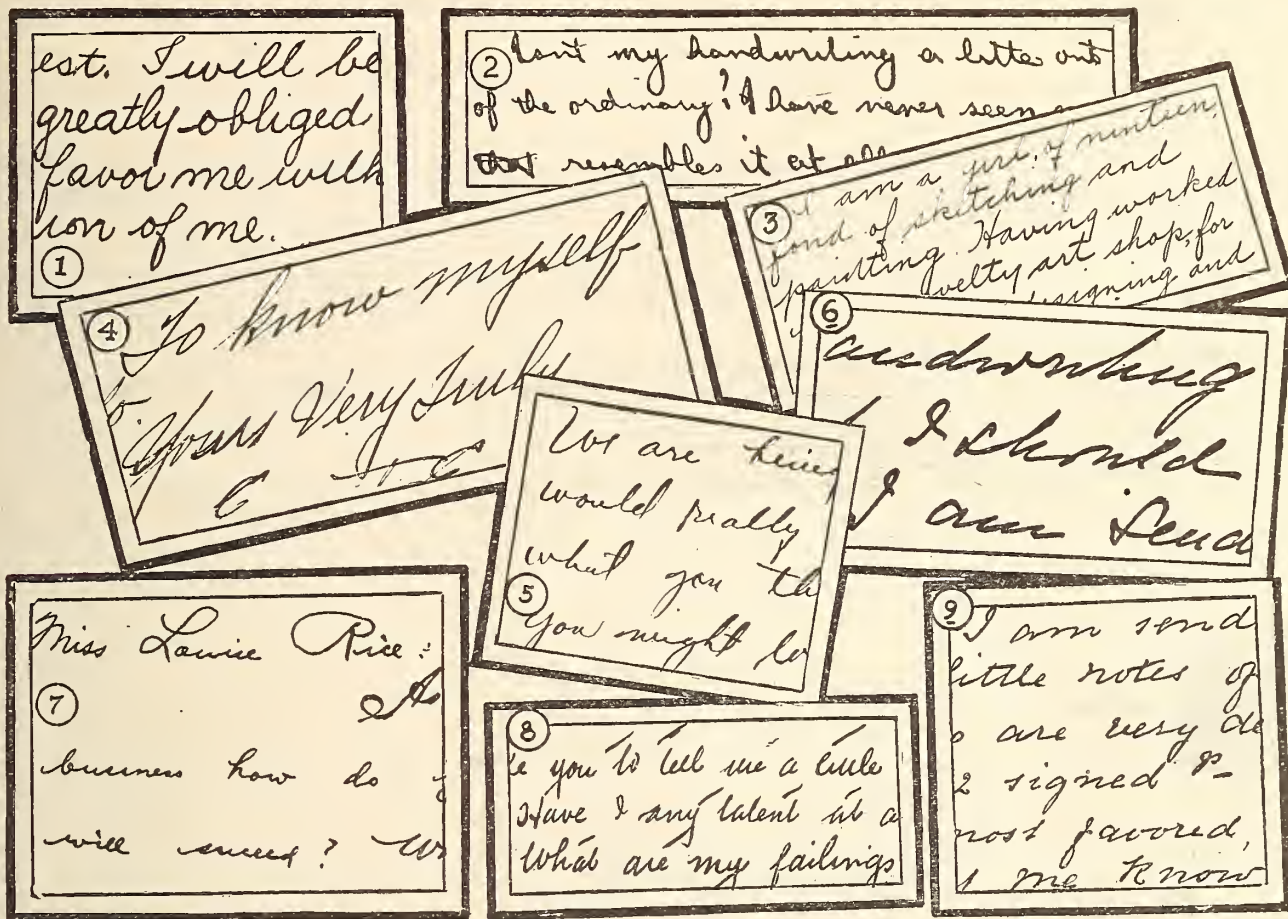 est. I will be
greatly obliged
favor me with
ion of me.
1
2
Isn't my handwriting a litte out
of the ordinary? I have never seen
that resembles it at all
3
I am a girl of nineteen,
fond of sketching and
painting. Having worked
velty art shop, for
designing and
4
To know myself
Yours Very Truly
5
We are being
would really
what you th
You might lo
6
andwriting
I should
I am Send
7
Miss Louise Rice:
As
business how do
will succeed? Wr
8
e you to tell me a little
Have I any talent at a
What are my failings
9
I am send
little notes of
s are very de
signed P-
most favored,
me Know